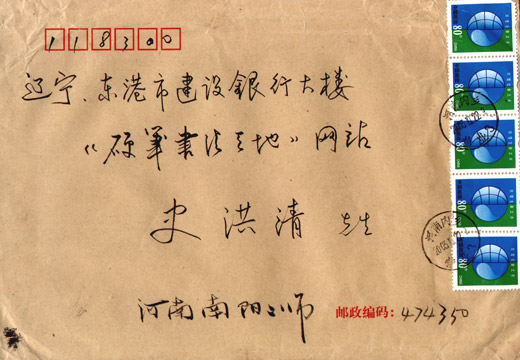 118300
辽宁、东港市建设银行大楼
《硬笔书法天地》网站
史洪清 先生
河南南阳二师
邮政编码：474350
80
80
80
80
80